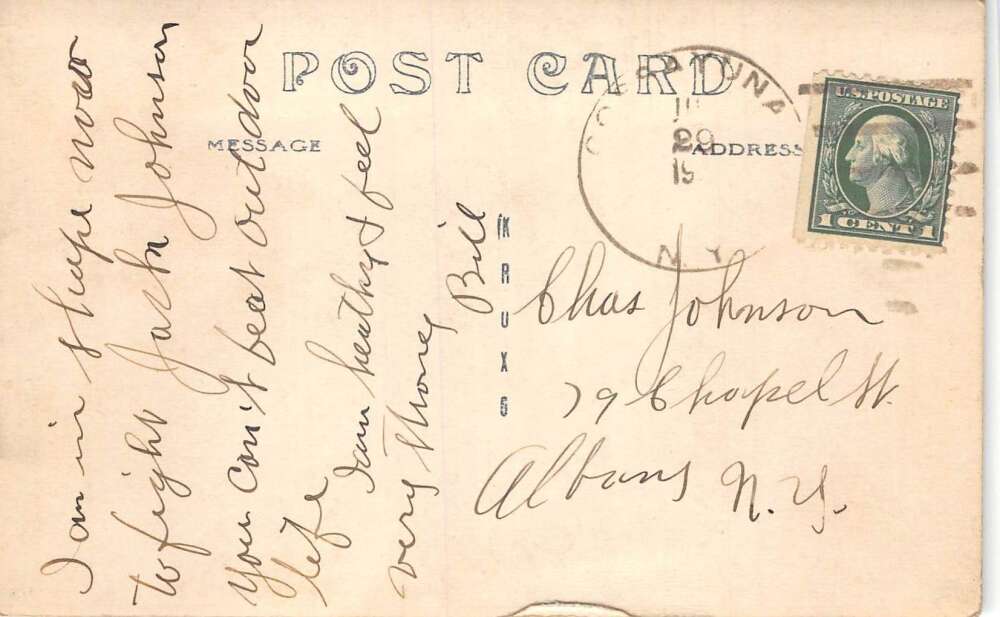 POST CARD
MESSAGE
ADDRESS
U.S. POSTAGE
1 CENT 1
29
N.Y.
I am in shape now
to fight Jack Johnson
You can't beat outdoor
life
I am healthy & feel
very strong
Bill
KRUXG
Chas Johnson
79 Chapel St.
Albany N.Y.